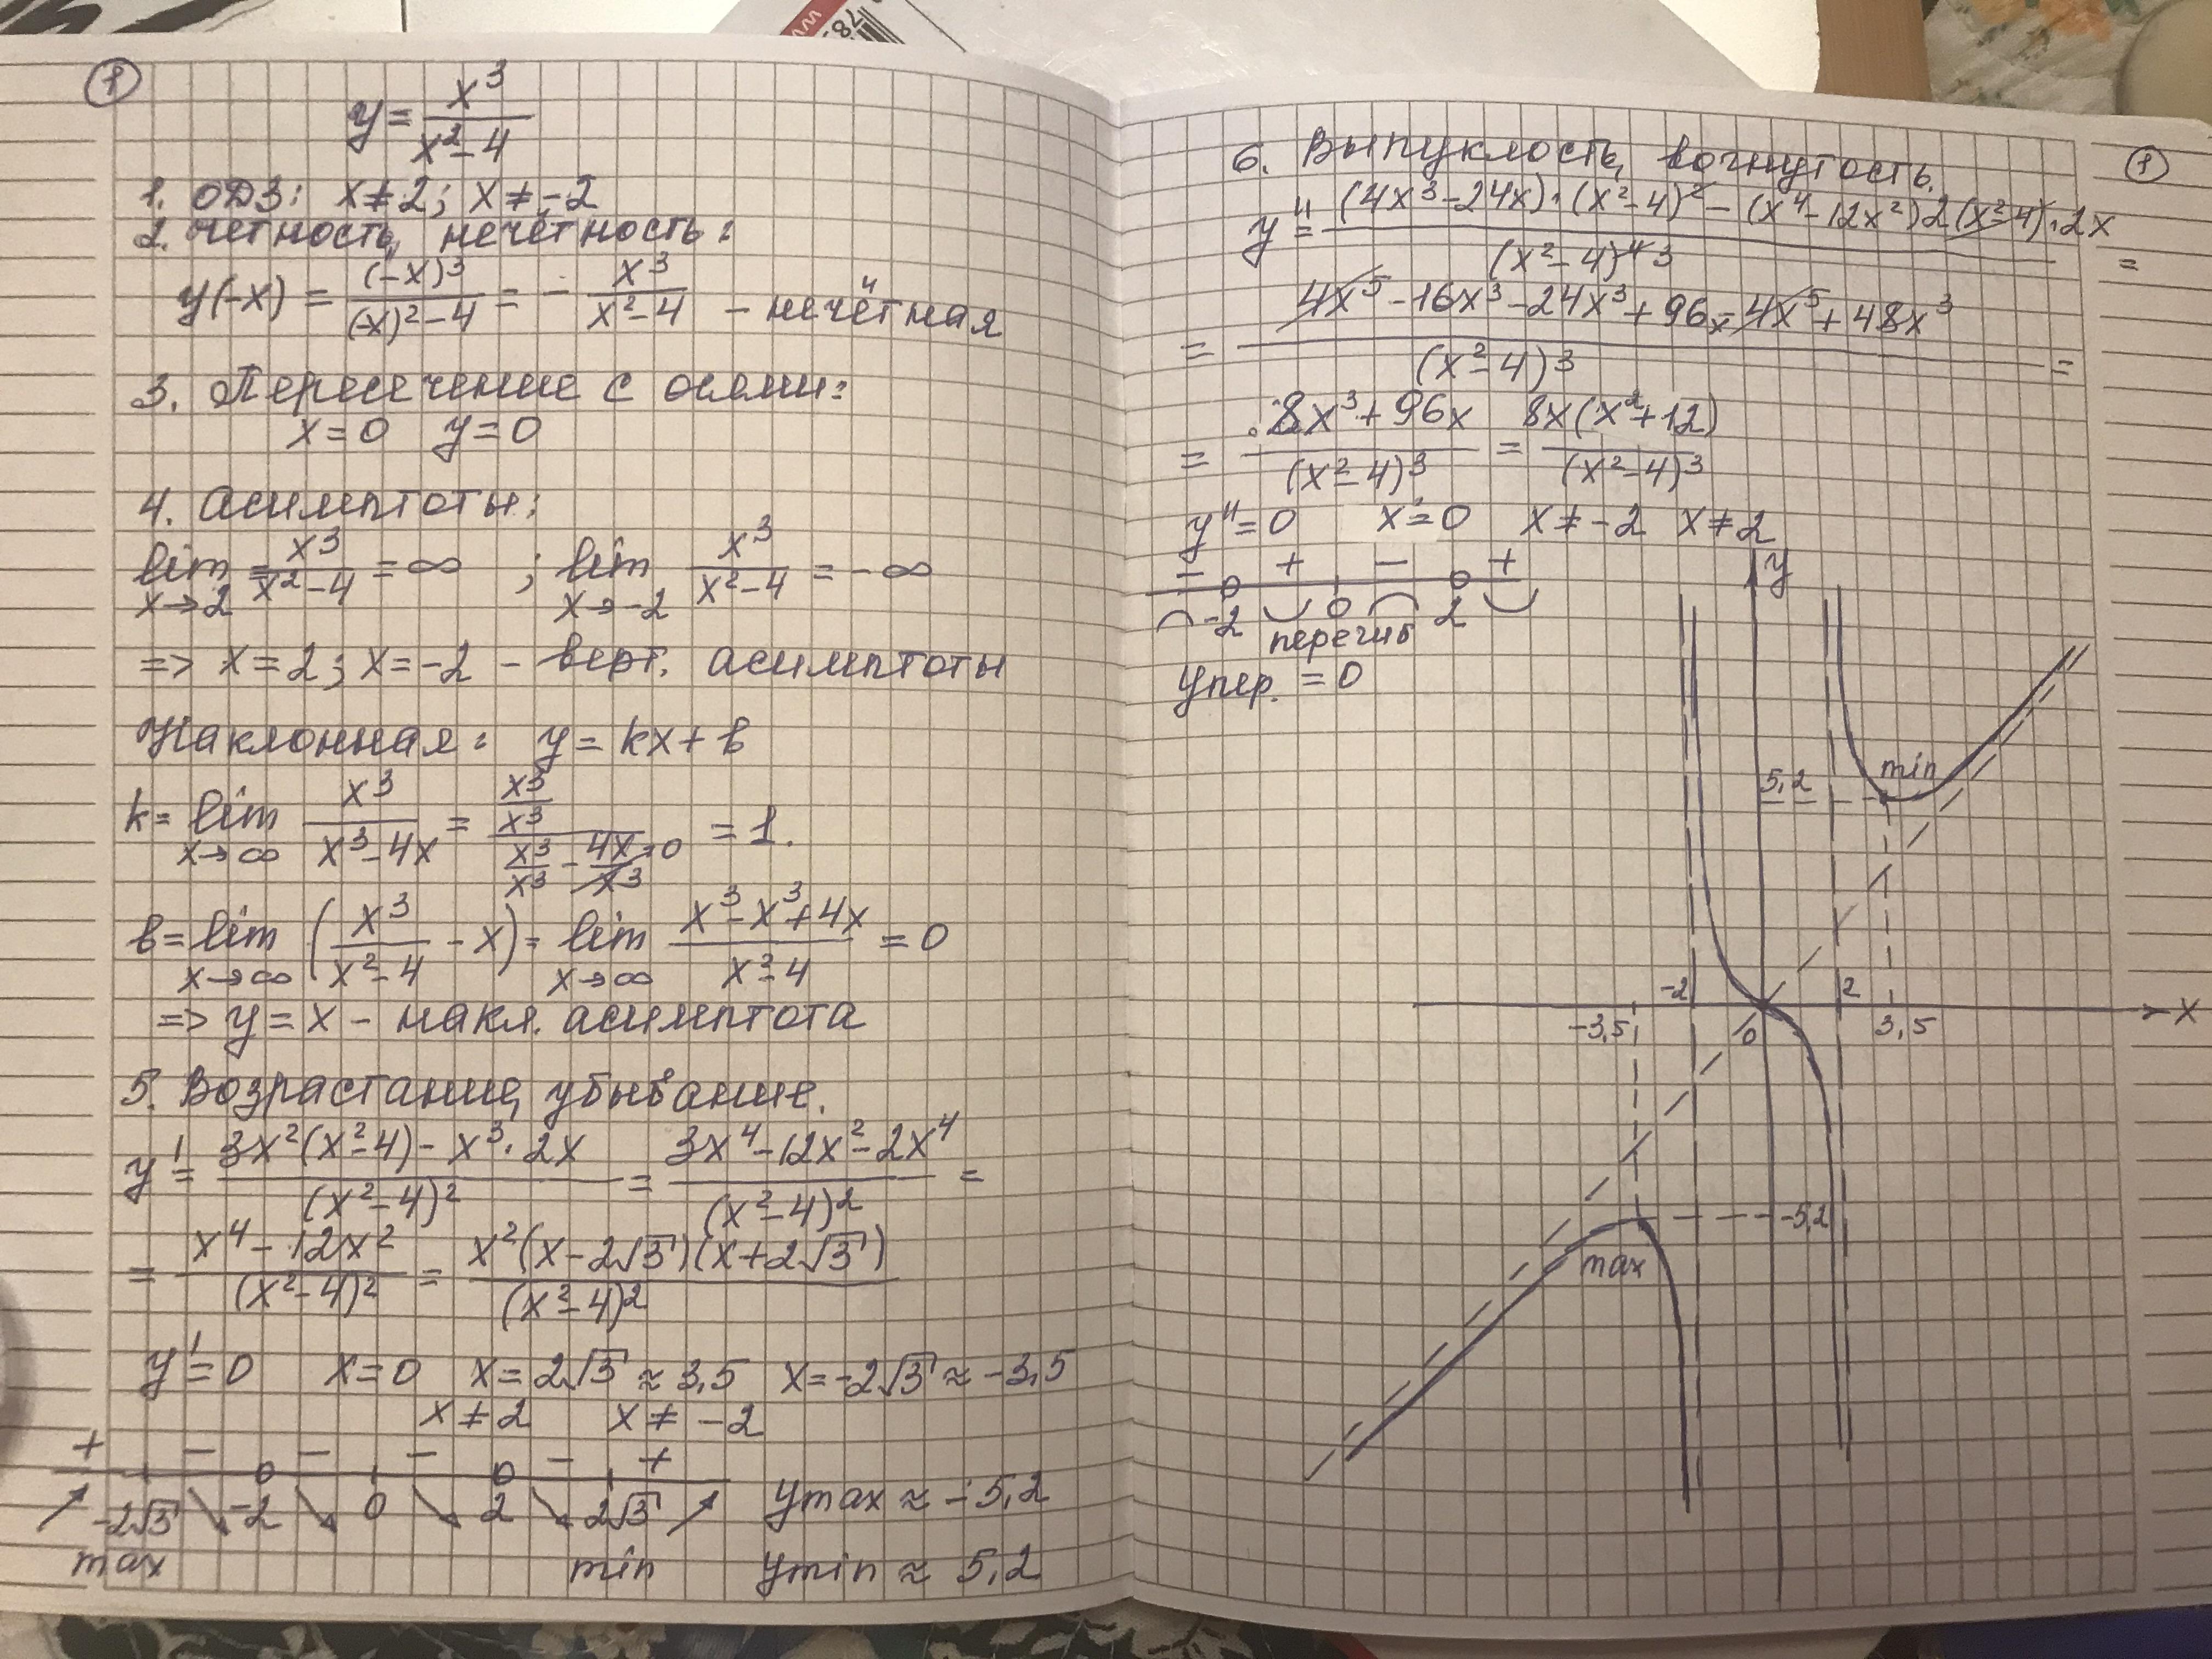 1
y = x³/(x²-4)
1. ОДЗ: x≠2; x≠-2
2. Чётность, нечётность:
y(-x) = (-x)³/((-x)²-4) = - x³/(x²-4) - нечётная
3. Пересечение с осями:
x=0 y=0
4. Асимптоты:
lim x→2 = x³/(x²-4) = ∞ ; lim x→-2 x³/(x²-4) = -∞
=> x=2; x=-2 - верт. асимптоты
Наклонная: y = kx+b
k= lim x→∞ x³/(x³-4x) = (x³/x³)/(x³/x³ - 4x/x³→0) = 1.
b= lim x→∞ (x³/(x²-4) - x) = lim x→∞ (x³-x³+4x)/(x²-4) = 0
=> y=x - накл. асимптота
5. Возрастание, убывание.
y' = (3x²(x²-4) - x³·2x)/(x²-4)² = (3x⁴-12x²-2x⁴)/(x²-4)² =
= (x⁴-12x²)/(x²-4)² = x²(x-2√3)(x+2√3)/(x²-4)²
y'=0 x=0 x=2√3≈3,5 x=-2√3≈-3,5
x≠2 x≠-2
+ - - - - +
-2√3 -2 0 2 2√3 ymax ≈ -5,2
max min ymin ≈ 5,2
1
6. Выпуклость, вогнутость.
y'' = ((4x³-24x)·(x²-4)² - (x⁴-12x²)2(x²-4)·2x)/(x²-4)⁴ ³ =
= (4x⁵-16x³-24x³+96x-4x⁵+48x³)/(x²-4)³ =
= (8x³+96x)/(x²-4)³ = 8x(x²+12)/(x²-4)³
y''=0 x=0 x≠-2 x≠2
- + - +
-2 0 2
перегиб
yпер. = 0
y
min
5,2
-2 2
-3,5 0 3,5 x
-5,2
max